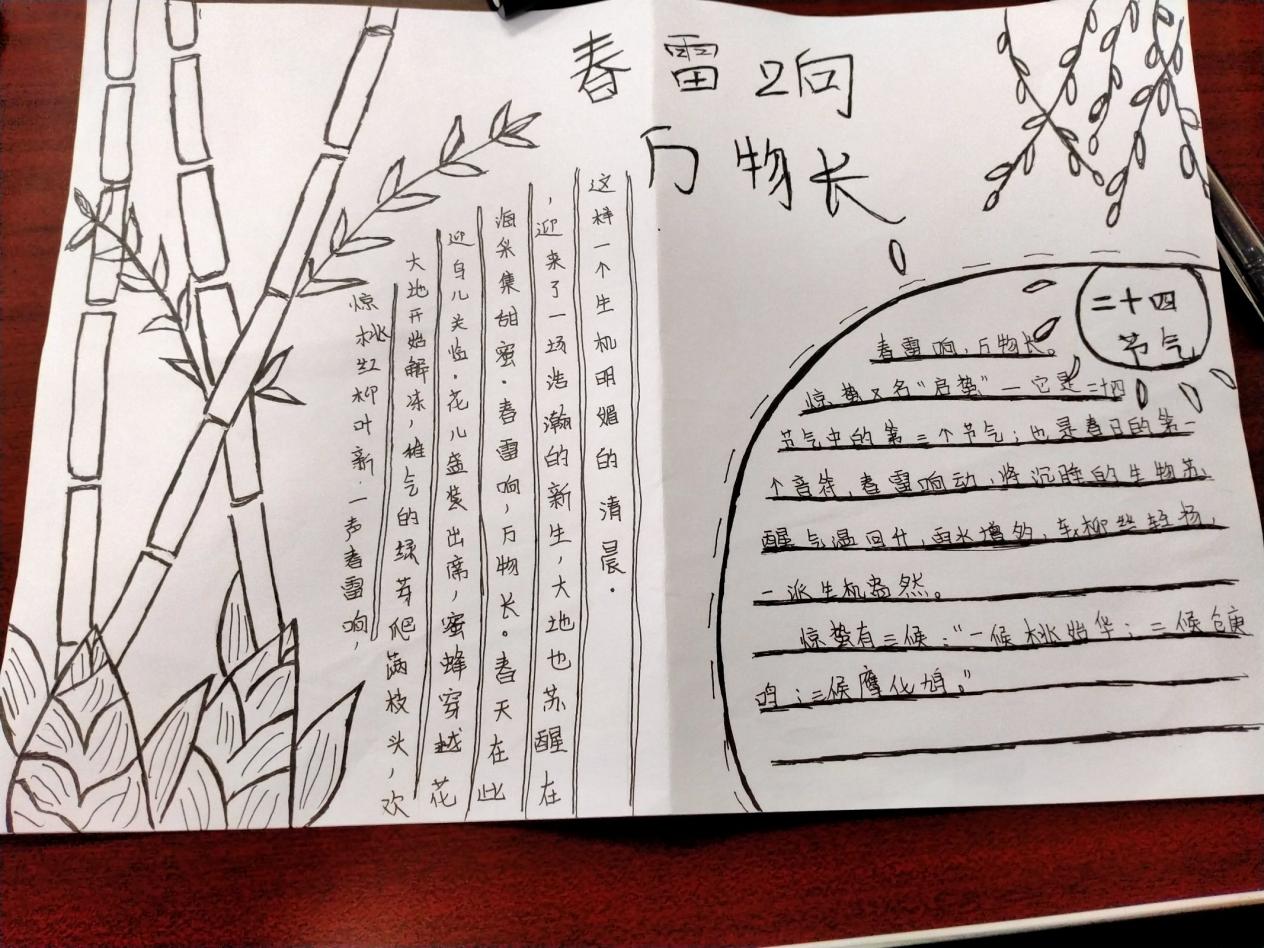 春雷响
万物长
惊桃红柳叶新.一声春雷响,
大地开始解冻,雄气的绿芽爬满枝头,欢
迎身儿关临.花儿盛装出席,蜜蜂穿越花
海采集甜蜜.春雷响,万物长。春天在此
,迎来了一场浩瀚的新生,大地也苏醒在
这样一个生机明媚的清晨.
二十四
节气
春雷响,万物长。
惊蛰又名“启蛰”—它是二十四
节气中的第三个节气;也是春日的第一
个音符,春雷响动,将沉睡的生物苏
醒气温回升,雨水增多,轻扬,
一派生机盎然。
惊蛰有三候:“一候桃始华;二候仓庚
鸣;三候鹰化鸠。”